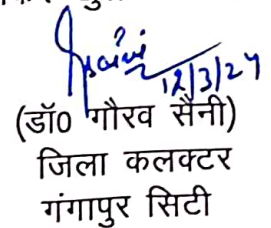 12/3/24
(डॉ0 गौरव सैनी)
जिला कलक्टर
गंगापुर सिटी